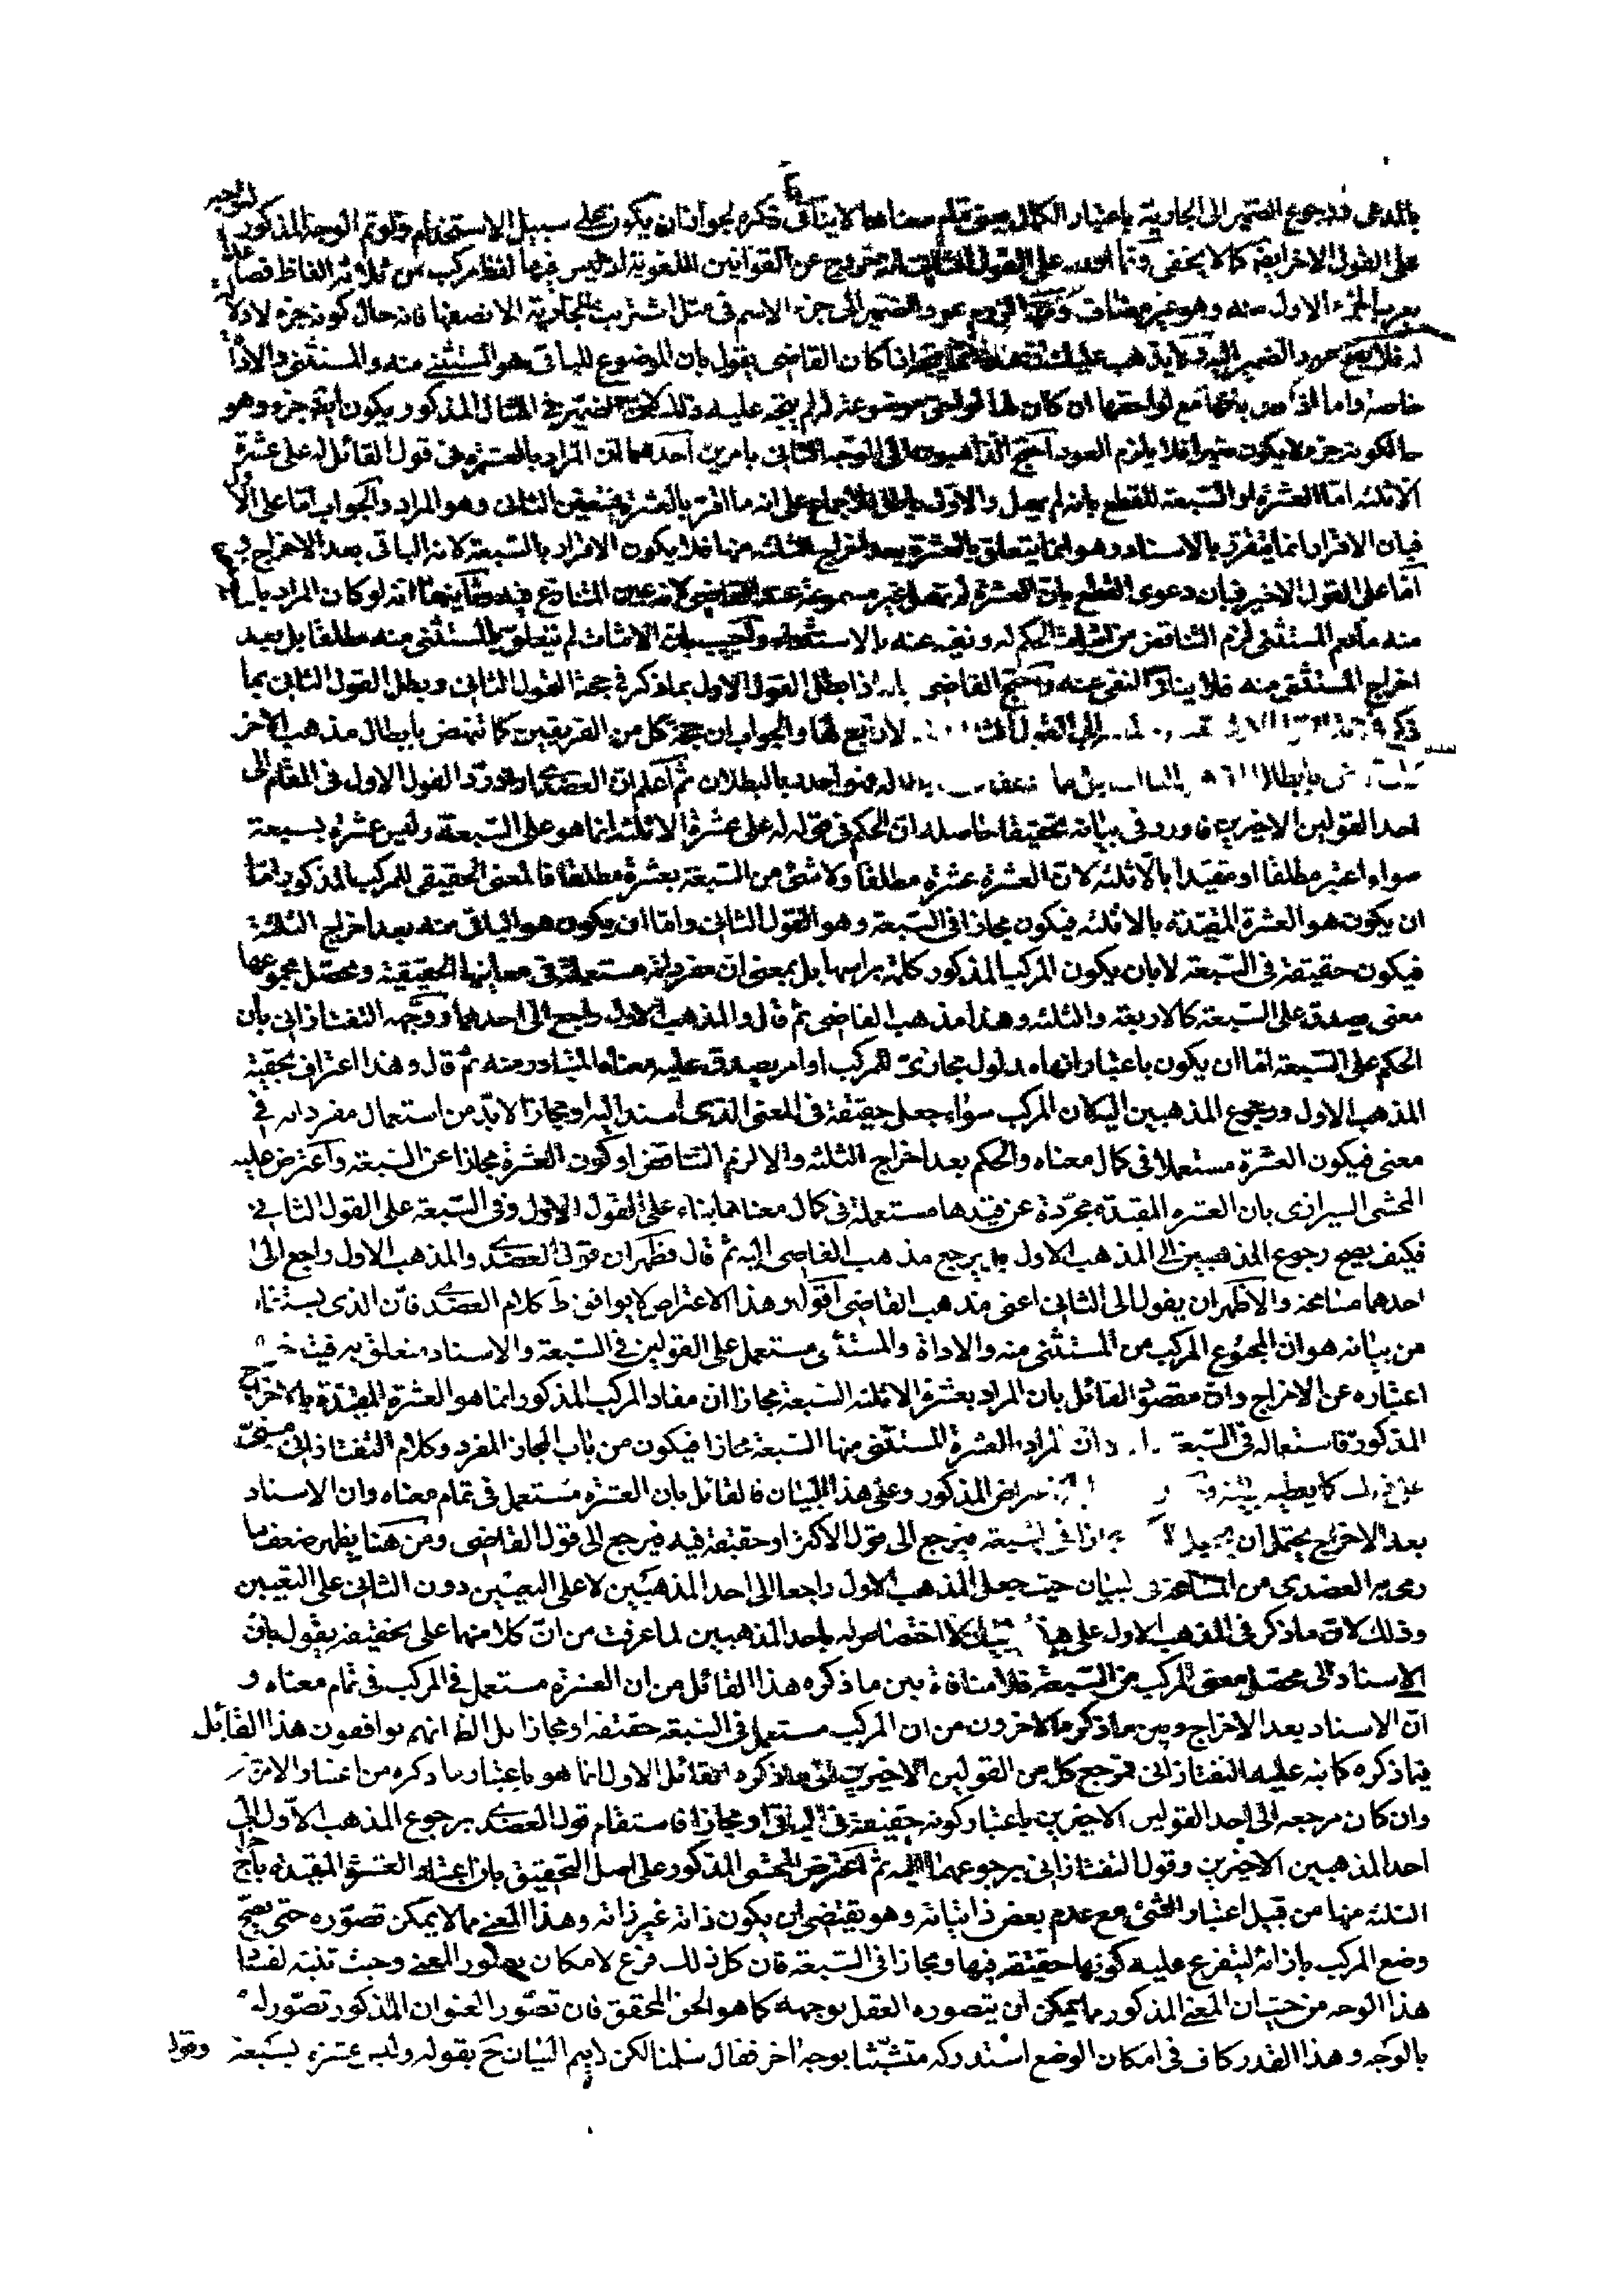 بالمدعى ورجوع الضمير الى الجارية باعتبار الكمال معناها لا ينافى ذكره لجواز ان يكون على سبيل الاستخدام ولو تم الوجه المذكور لتوجه
على القول الاخر ايضا كما لا يخفى على القول الثالث خروج عن القوانين اللغوية اذ ليس فيها لفظ مركب من ثلاثة الفاظ فصاعدا
يعرب الجزء الاول منه وهو غير مضاف عود الضمير الى جزء الاسم فى مثل اشتريت الجارية الا نصفها فانه حال كونه جزء لا دلالة
له فلا يصح عود الضمير اليه ولا يذهب عليك كان القاضى يقول بان الموضوع للباقى هو المستثنى منه والمستثنى والاداة
خاصة واما مع لواحقها ان كان لها لواحق موضوعة له لم يتجه عليه ذلك الضمير فى المثال المذكور يكون جزء وهو
حال كونه جزء لا يكون ضميرا فلا يلزم العود احتج الذاهبون الى الوجه الثانى بامرين احدهما ان المراد بالعشرة فى قول القائل له على عشرة
الا ثلثة اما العشرة او السبعة للقطع بانه لم والاول باطل للاجماع على انه ما اقر بالعشرة فتعين الثانى وهو المراد والجواب اما على الاول
فبان الاقرار انما بالاسناد وهو انما يتعلق بالعشرة بعد اخراج الثلثة منها فلا يكون الاقرار الا بالسبعة لانه الباقى بعد الاخراج
اما على القول الاخير فبان دعوى القطع بان العشرة غير مسموعة عند القاضى لانه عين المتنازع فيه وثانيهما انه لو كان المراد بالمستثنى
منه ما يعم المستثنى لزم التناقض من اثبات الحكم له ونفيه عنه بالاستثناء واجيب بان الاثبات لم يتعلق بالمستثنى منه مطلقا بل بعد
اخراج المستثنى منه فلا ينافى النفى عنه واحتج القاضى بانه اذا بطل القول الاول بما ذكر فى حجة القول الثانى وبطل القول الثانى بما
ذكر القول لا رابع لها والجواب ان حجة كل من الفريقين كما تنهض بابطال مذهب الاخر
بابطال بالبطلان ثم اعلم ان العضدى اورد القول الاول فى المقام الى
احد القولين الاخيرين واورد فى بيانه تحقيقا حاصله ان الحكم فى قوله له على عشرة الا ثلثة انما هو على السبعة وليس عشرة بسبعة
سواء اعتبر مطلقا او مقيدا بالا ثلثة لان العشرة عشرة مطلقا ولا شئ من السبعة بعشرة مطلقا فالمعنى الحقيقى للمركب المذكور اما
ان يكون هو العشرة المقيدة بالا ثلثة فيكون مجازا فى السبعة وهو القول الثانى واما ان يكون هو الباقى منه بعد اخراج الثلثة
فيكون حقيقة فى السبعة لا بان يكون المركب المذكور كلمة براسها بل بمعنى ان مفرداته مستعملة فى معانيها الحقيقية ومحصل مجموعها
معنى يصدق على السبعة كالاربعة والثلثة وهذا مذهب القاضى ثم قال والمذهب الاول راجع الى احدهما ووجهه التفتازانى بان
الحكم على السبعة اما ان يكون باعتبار انها مدلول مجازى للمركب او امر يصدق عليه معناه المتبادر منه ثم قال وهذا اعتراف بحقية
المذهب الاول ورجوع المذهبين اليه لان المركب سواء جعل حقيقة فى المعنى الذى اسند اليه او مجازا لا بد من استعمال مفرداته فى
معنى فيكون العشرة مستعملا فى كمال معناه والحكم بعد اخراج الثلثة والا لزم التناقض او كون العشرة مجازا عن السبعة واعترض عليه
المحشى الشيرازى بان العشرة المقيدة مجردة عن قيدها مستعملة فى كمال معناها بناء على القول الاول وفى السبعة على القول الثانى
فكيف يصح رجوع المذهبين الى المذهب الاول بل يرجع مذهب القاضى اليه ثم قال فظهر ان قول العضدى والمذهب الاول راجع الى
احدهما مسامحة والاظهر ان يقول الى الثانى اعنى مذهب القاضى اقول وهذا الاعتراض لا يوافق ظ كلام العضدى فان الذى يستفاد
من بيانه هو ان المجموع المركب من المستثنى منه والاداة والمستثنى مستعمل على القولين فى السبعة والاسناد متعلق به
اعتباره عن الاخراج وان مقصود القائل بان المراد بعشرة الا ثلثة السبعة مجازا ان مفاد المركب المذكور انما هو العشرة المقيدة بالاخراج
المذكور فاستعماله فى السبعة المراد بالعشرة المستثنى منها السبعة مجازا فيكون من باب المجاز المفرد وكلام التفتازانى مبنى
على ذلك كما يعطيه المذكور وعلى هذا البيان فالقائل بان العشرة مستعمل فى تمام معناه وان الاسناد
بعد الاخراج يحتمل ان مجازا فى السبعة فيرجع الى قول الاكثر او حقيقة فيه فيرجع الى قول القاضى ومن هنا يظهر ضعف ما
العضدى من المسامحة فى البيان حيث جعل المذهب الاول راجعا الى احد المذهبين لا على التعيين دون الثانى على التعيين
وذلك لان ما ذكر فى المذهب الاول على هذا البيان لا اختصاص له باحد المذهبين لما عرفت من ان كلا منهما على تحقيقه يقول بان
الاسناد الى محصل معنى المركب من السبعة فلا منافاة بين ما ذكره هذا القائل من ان العشرة مستعمل فى المركب فى تمام معناه و
ان الاسناد بعد الاخراج وبين ما ذكره الاخرون من ان المركب مستعمل فى السبعة حقيقة او مجازا بل الظ انهم يوافقون هذا القائل
فيما ذكره كما نبه عليه التفتازانى فمرجع كل من القولين الاخيرين الى ما ذكره القائل الاول انما هو باعتبار ما ذكره من اعتبار
وان كان مرجعه الى احد القولين الاخيرين باعتبار كونه حقيقة فى الباقى او مجازا فاستقام قول العضدى برجوع المذهب الاول الى
احد المذهبين الاخيرين وقول التفتازانى برجوعهما اليه ثم اعترض المحشى المذكور على اصل التحقيق بان اعتبار العشرة المقيدة باخراج
الثلثة منها من قبيل اعتبار الشئ مع عدم بعض ذاتياته وهو يقتضى ان يكون ذاته غير ذاته وهذا المعنى مما لا يمكن تصوره حتى يصح
وضع المركب بازائه ليتفرع عليه كونها حقيقة فيها ومجازا فى السبعة فان كل ذلك فرع لامكان تصور المعنى وحيث تنبه لفساد
هذا الوجه من حيث ان المعنى المذكور مما يمكن ان يتصوره العقل بوجهه كما هو الحق المحقق فان تصور العنوان المذكور تصور له
بالوجه وهذا القدر كاف فى امكان الوضع استدركه متشبثا بوجه اخر فقال سلمنا لكن لا يتم البيان ح بقوله وليس عشرة بسبعة وقوله